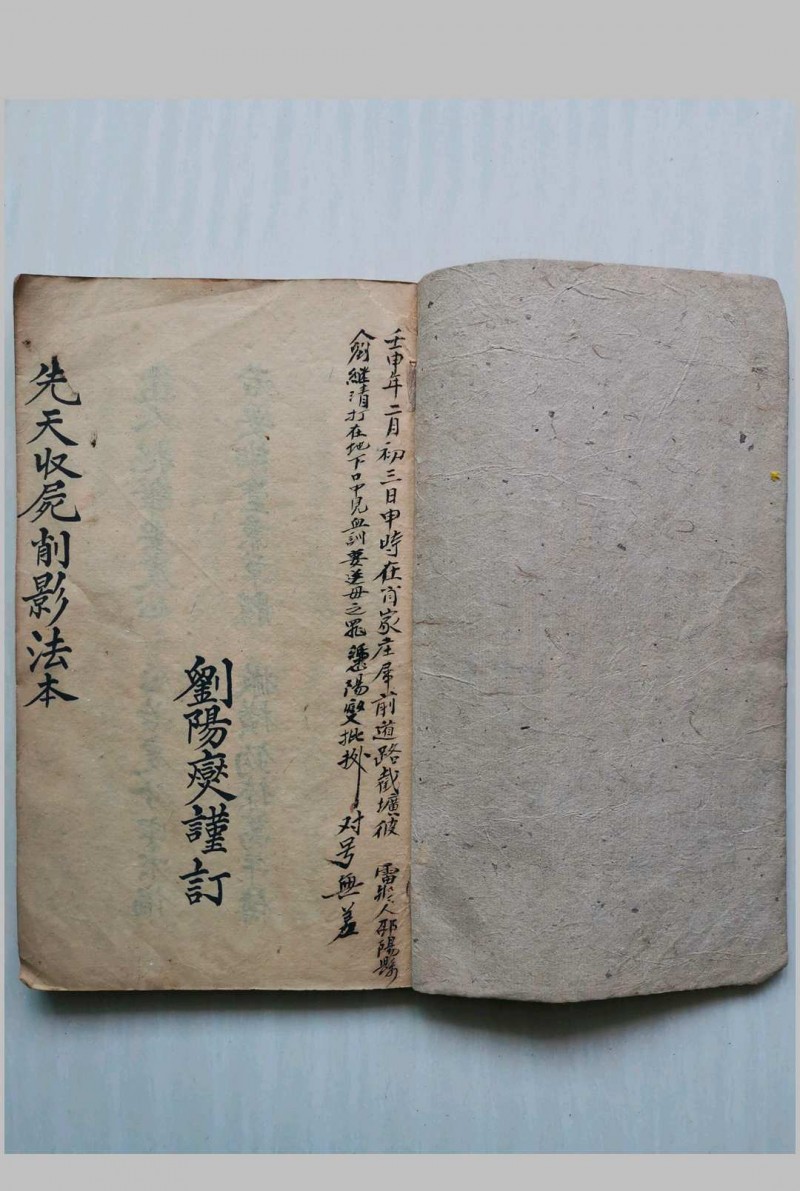 壬申年二月初三日申時在肓家庄屋前道路截壙彼 雷擬人邵陽縣
劉繼清打在地下口中見血訓要逆母之罪 陽燮批 对号無差
劉陽燮謹訂
先天收屍削影法本